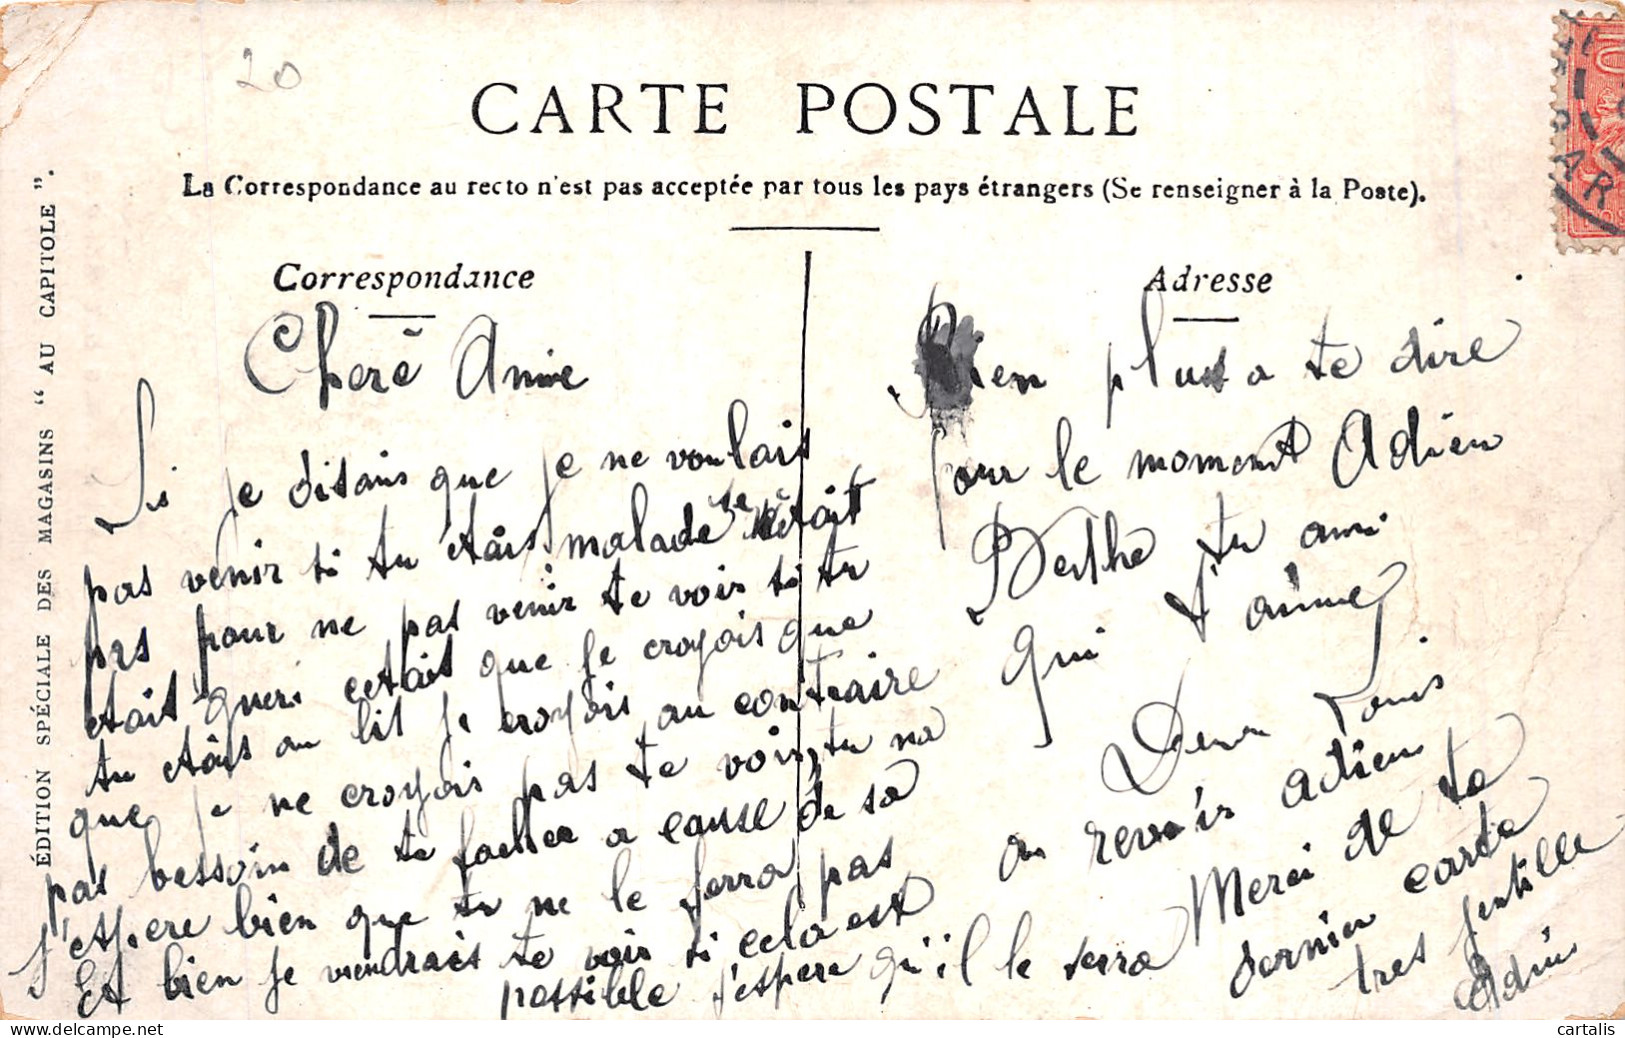 20
CARTE POSTALE
La Correspondance au recto n'est pas acceptée par tous les pays étrangers (Se renseigner à la Poste).
ÉDITION SPÉCIALE DES MAGASINS “ AU CAPITOLE ”.
Correspondance
Cherè Amie
Si je disais que je ne voulais
pas venir si tu etâis malade se nétait
pas pour ne pas venir te voir si tu
etait gueri cetait que je croyois que
tu etâis au lit je croyois au contraire
que je ne croyois pas te voir tu na
pas bessoin de te facher a cause de sa
J'espere bien que tu ne le ferra pas
Et bien je viendrais te voir si cela est
possible j'espere qu'il le serra
Adresse
Rien plus a te dire
pour le moment Adieu
Berthe tu ami
qui t'aime
Denis
au revoir adieu
Merci de ta
dernier carte
tres jentille
Adieu
PAR
cartalis